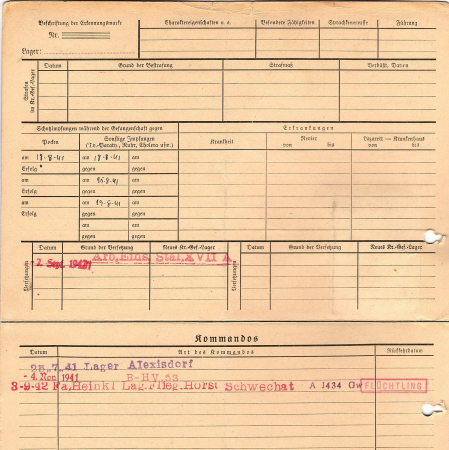 Beschriftung der Erkennungsmarke
Nr.
Lager:
Charaktereigenschaften u. a.
Besondere Fähigkeiten
Sprachkenntnisse
Führung
Strafen im Kr.-Gef.-Lager
Datum
Grund der Bestrafung
Strafmaß
Verbüßt, Datum
Schutzimpfungen während der Gefangenschaft gegen
Erkrankungen
Pocken
Sonstige Impfungen
(Ty.-Paraty., Ruhr, Cholera usw.)
Krankheit
Revier
von bis
Lazarett — Krankenhaus
von bis
am 17-8-41 am 17-8-41 am
Erfolg gegen gegen
am am am
Erfolg gegen gegen
am am am
Erfolg gegen gegen
Versetzungen
Datum
Grund der Versetzung
Neues Kr.-Gef.-Lager
Versetzungen
Datum
Grund der Versetzung
Neues Kr.-Gef.-Lager
2. Sept. 1942 Stal.XVII A
Kommandos
Datum
Art des Kommandos
Rückkehrdatum
7.41 Lager Alexisdorf
-4. Nov. 1941
3-9-42 Fa, Heinkl Lag.Flieg.Horst Schwechat A 1434 Gw FLÜCHTLING